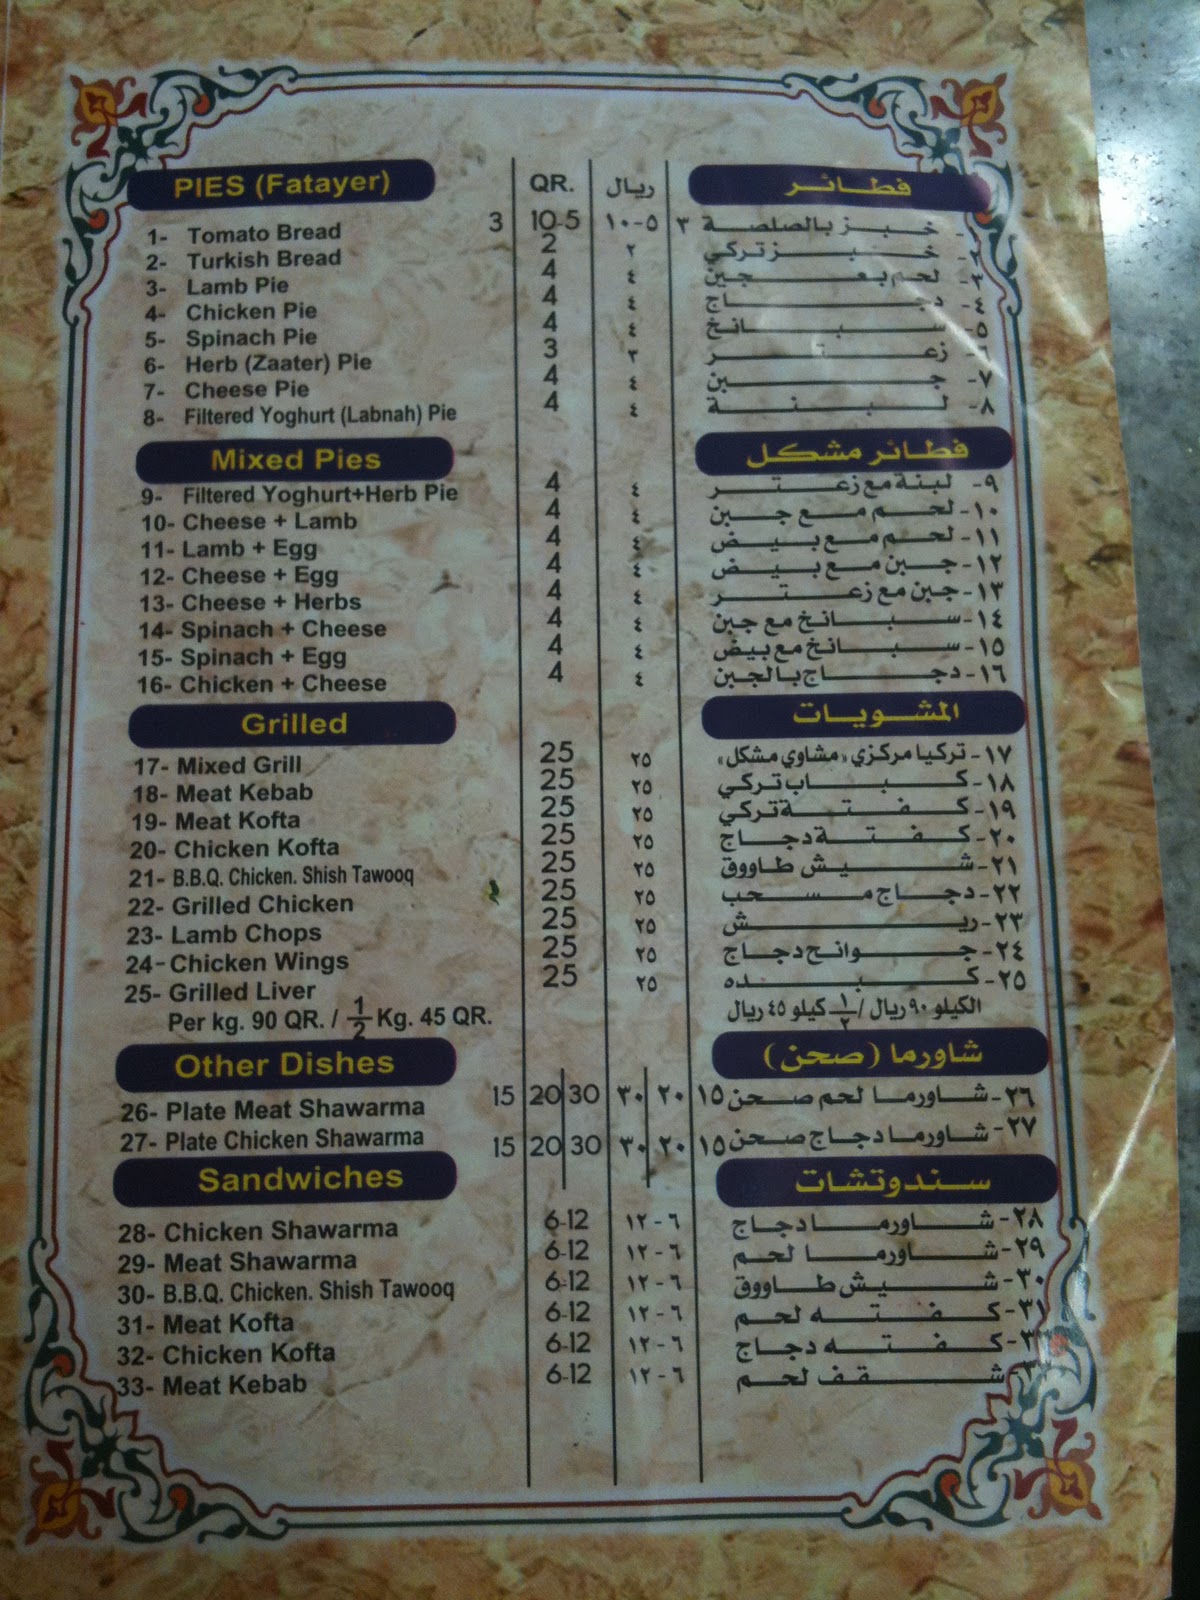 PIES (Fatayer) QR. ريال فطائر
1- Tomato Bread 3 10-5 ١٠-٥ ٣ خبز بالصلصة -
2- Turkish Bread 2 ٢ خبز تركي -٢
3- Lamb Pie 4 ٤ لحم بعجين -٣
4- Chicken Pie 4 ٤ دجاج -٤
5- Spinach Pie 4 ٤ سبانخ -٥
6- Herb (Zaater) Pie 3 ٣ زعتر -٦
7- Cheese Pie 4 ٤ جبن -٧
8- Filtered Yoghurt (Labnah) Pie 4 ٤ لبنة -٨
Mixed Pies فطائر مشكل
9- Filtered Yoghurt+Herb Pie 4 ٤ لبنة مع زعتر -٩
10- Cheese + Lamb 4 ٤ لحم مع جبن -١٠
11- Lamb + Egg 4 ٤ لحم مع بيض -١١
12- Cheese + Egg 4 ٤ جبن مع بيض -١٢
13- Cheese + Herbs 4 ٤ جبن مع زعتر -١٣
14- Spinach + Cheese 4 ٤ سبانخ مع جبن -١٤
15- Spinach + Egg 4 ٤ سبانخ مع بيض -١٥
16- Chicken + Cheese 4 ٤ دجاج بالجبن -١٦
Grilled المشويات
17- Mixed Grill 25 ٢٥ تركيا مركزي «مشاوي مشكل» -١٧
18- Meat Kebab 25 ٢٥ كباب تركي -١٨
19- Meat Kofta 25 ٢٥ كفتة تركي -١٩
20- Chicken Kofta 25 ٢٥ كفتة دجاج -٢٠
21- B.B.Q. Chicken. Shish Tawooq 25 ٢٥ شيش طاووق -٢١
22- Grilled Chicken 25 ٢٥ دجاج مسحب -٢٢
23- Lamb Chops 25 ٢٥ ريش -٢٣
24- Chicken Wings 25 ٢٥ جوانح دجاج -٢٤
25- Grilled Liver 25 ٢٥ كبده -٢٥
Per kg. 90 QR. / 1/2 Kg. 45 QR. الكيلو ٩٠ ريال / ١/٢ كيلو ٤٥ ريال
Other Dishes شاورما (صحن)
26- Plate Meat Shawarma 15 20 30 ٣٠ ٢٠ ١٥ شاورما لحم صحن -٢٦
27- Plate Chicken Shawarma 15 20 30 ٣٠ ٢٠ ١٥ شاورما دجاج صحن -٢٧
Sandwiches سندوتشات
28- Chicken Shawarma 6-12 ٦-١٢ شاورما دجاج -٢٨
29- Meat Shawarma 6-12 ٦-١٢ شاورما لحم -٢٩
30- B.B.Q. Chicken. Shish Tawooq 6-12 ٦-١٢ شيش طاووق -٣٠
31- Meat Kofta 6-12 ٦-١٢ كفته لحم -٣١
32- Chicken Kofta 6-12 ٦-١٢ كفته دجاج
33- Meat Kebab 6-12 ٦-١٢ شقف لحم